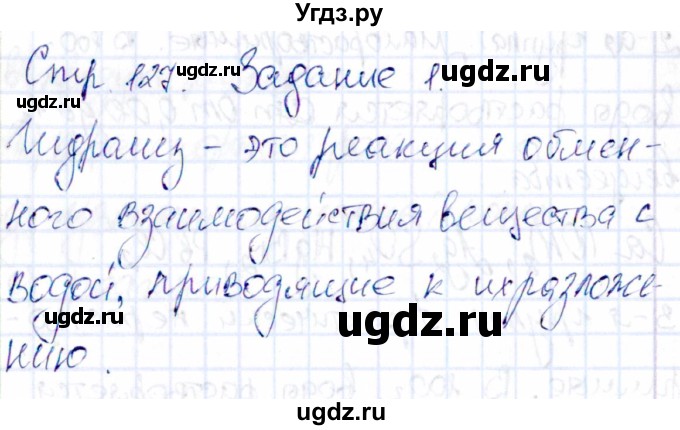 Угдз.ру
Стр. 127. Задание 1.
ugdz.ru ugdz.ru
ugdz.ru
Гидролиз - это реакция обмен-
ного взаимодействия вещества с
водой, приводящие к их разложе-
ugdz.ru ugdz.ru
нию.
ugdz.ru
ugdz.ru